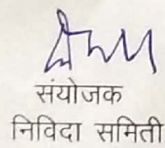 संयोजक
निविदा समिती